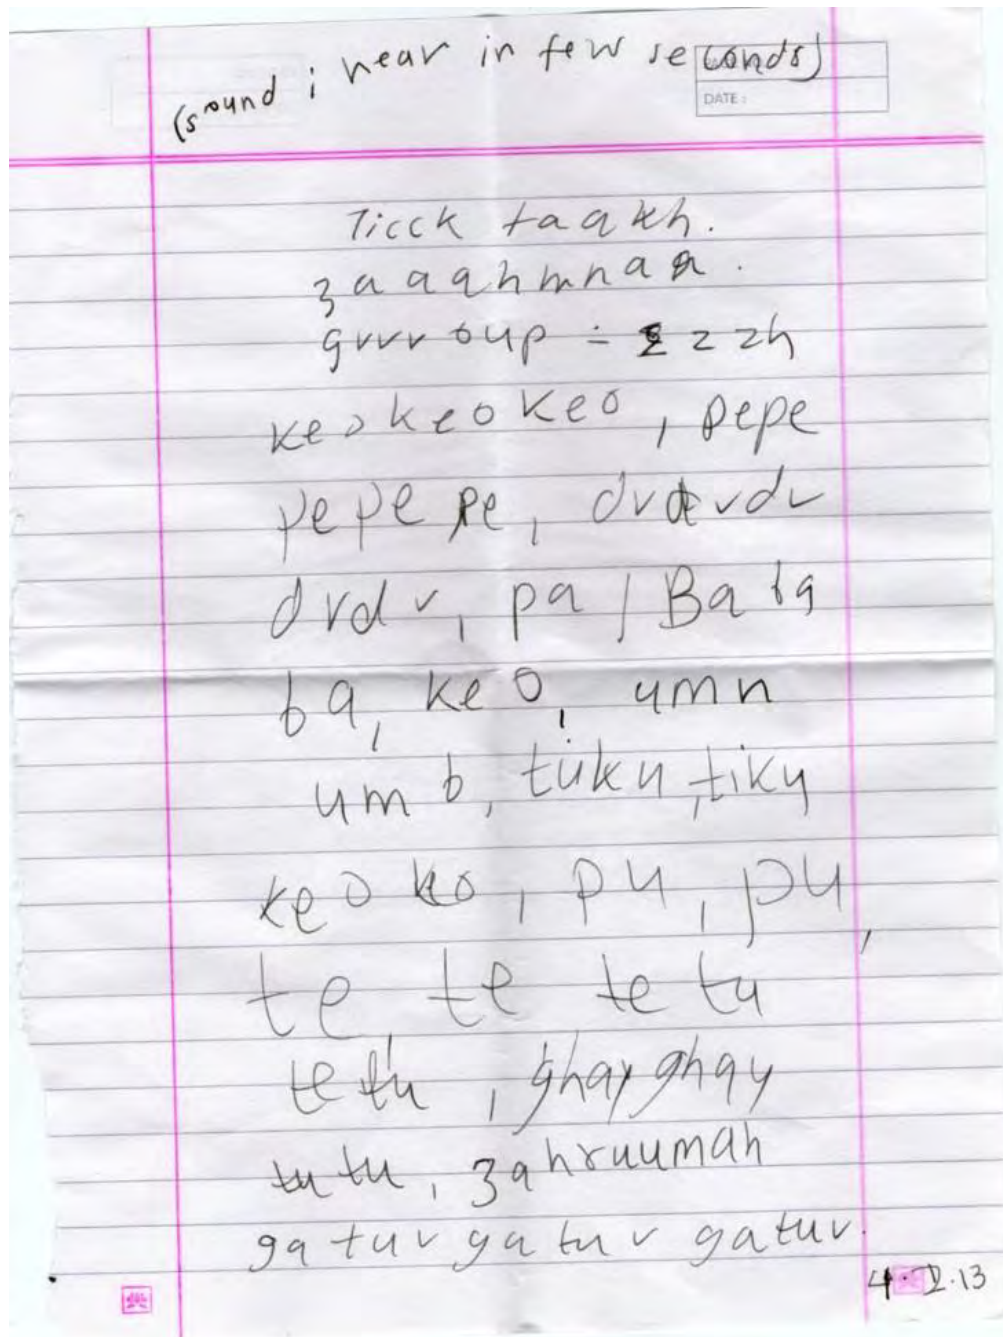 (sound i hear in few seconds)
DATE:
Ticck taakh.
zaaahmnaa.
grrroup - zzzh
keokeokeo, pepe
pepepe, drdrdr
drdr, pa / Baba
ba, keo, umn
umb, tuku, tiku
keoko, pu, pu,
te te te tu
tetu, ghayghay
tutu, zahruumah
gaturgaturgatur.
4.2.13